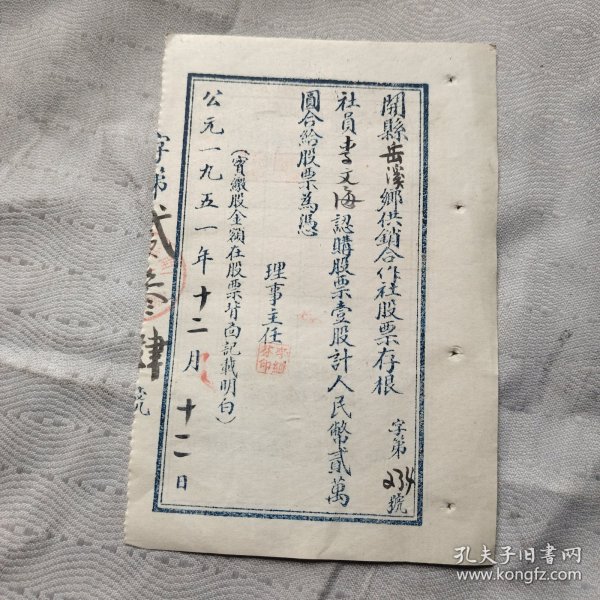 開縣岳溪鄉供銷合作社股票存根
字第234號
社員李文海認購股票壹股計人民幣貳萬
圓合給股票為憑
理事主任
（實繳股金額在股票背面記載明白）
公元一九五一年十二月十二日
字第貳叁肆號
孔夫子旧书网
www.kongfz.com